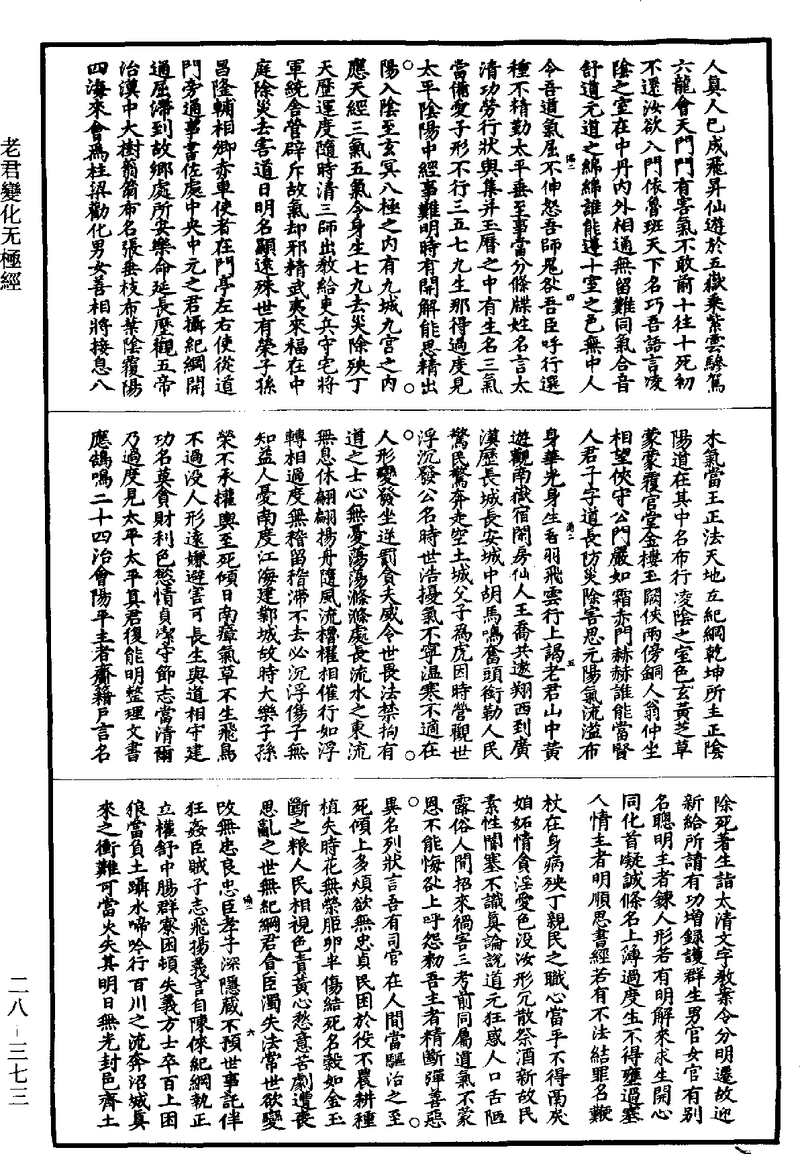 老君變化无極經
人真人已成飛昇仙遊於五嶽乘紫雲驂駕
六龍會天門門有害氣不敢前十往十死初
不還汝欲入門依魯班天下名巧吾語言凌
陰之室在中丹內外相通無留難同氣合音
舒道元道之綿綿誰能達十室之邑無中人
令吾道氣屈不伸怒吾師鬼欲吾臣呼行選
種不精勤太平垂至事當分條牒姓名言太
清功勞行狀與集并玉曆之中有生名三氣
當備愛子形不行三五七九生那得過度見
太平陰陽中經事難明時有開解能思精出
陽入陰至玄冥八極之內有九城九宮之內
應天經三氣五氣令身生七九去災除殃丁
天歷運度隨時清三師出教給吏兵守宅將
軍統舍營辟斥故氣却邪精武夷來福在中
庭除災去害道日明名顯遠殊世有榮子孫
昌隆輔相卿赤車使者在門亭左右使從道
門旁通事書佐處中央中元之君攝紀綱開
通屈滯到故鄉處所安樂命延長歷觀五帝
治漢中大樹翁翁布名張垂枝布葉陰覆陽
四海來會為柱梁勸化男女善相將接息八
木氣當王正法天地左紀綱乾坤所主正陰
陽道在其中名布行凌陰之室色玄黃芝草
蒙蒙覆官堂金樓玉闕俠兩傍銅人翁仲坐
相望俠守公門嚴如霜赤門赫赫誰能當賢
人君子字道長防災除害思元陽氣流溢布
身華光身生毛羽飛雲行上謁老君山中黃
遊觀南嶽宿閑房仙人王喬共遨翔西到廣
漢歷長城長安城中胡馬鳴奮頭銜勒人民
驚民驚奔走空土城父子為虎因時營觀世
浮沉發公名時世浩擾氣不寧溫寒不適在
人形變發坐逆罰貪夫威令世畏法禁拘有
道之士心無憂蕩蕩滌滌處長流水之東流
無息休翩翩揚舟隨風流櫓櫂相催行如浮
轉相過度無稽留稽滯不去必沉浮傷子無
知益人憂南度江海建鄴城故時大樂子孫
榮不承權輿至死傾日南瘴氣草不生飛鳥
不過没人形遠嫌避害可長生與道相守建
功名莫貪財利色慾情貞潔守節志當清爾
乃過度見太平太平真君復能明整理文書
應鶴鳴二十四治會陽平主者齎籍戶言名
除死著生詣太清文字教案令分明還故迎
新給所請有功增錄護群生男官女官有別
名聰明主者鍊人形若有明解來求生開心
同化首凝誠條名上簿過度生不得壅過塞
人情主者明順思書經若有不法結罪名鞭
杖在身病殃丁親民之職心當平不得㒺戾
妲妬情貪淫愛色没汝形冗散祭酒新故民
素性闇塞不識真論說道元狂惑人口舌陋
露俗人間招來禍害三考前同屬道氣不蒙
恩不能悔欲上呼怨勑吾主者精斷彈善惡
異名列狀言吾有司官在人間當驅治之至
死傾上多煩欲無忠貞民困於役不農耕種
植失時花無榮胞卵半傷結死名穀如金玉
斷之粮人民相視色青黃心愁意苦劇遭喪
思亂之世無紀綱君會臣濁失法常世欲變
改無忠良忠臣孝子深隱藏不預世事託佯
狂姦臣賊子志飛揚義言自陳俠紀綱執正
立權舒中腸群寮困頓失義方士卒百上困
狼當負土躡水啼吟行百川之流奔沼城真
來之衝難可當火失其明日無光封邑齊土
二八－三七三